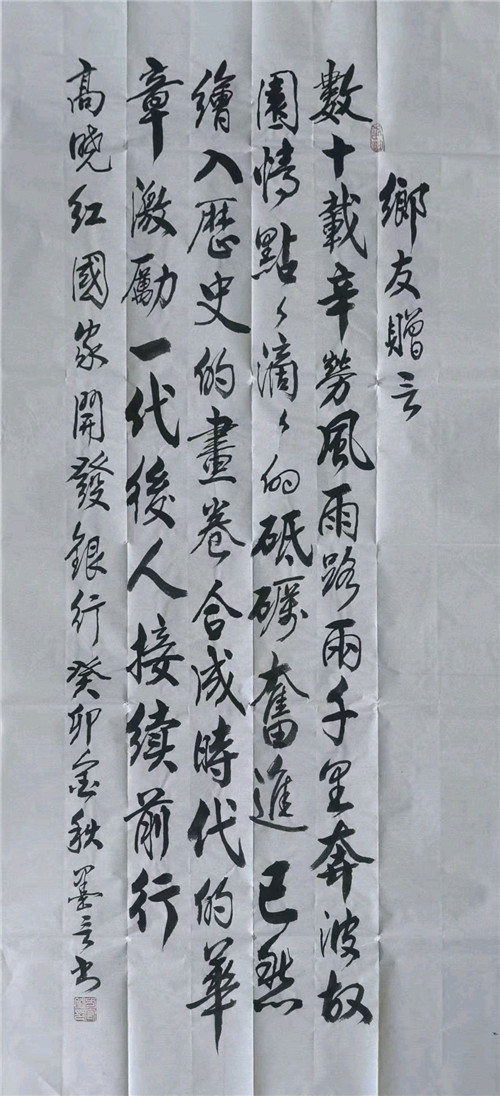 鄉友贈言
數十載辛勞風雨路兩千里奔波故
園情點々滴々的砥礪奮進已然
繪入歷史的畫卷合成時代的華
章激勵一代後人接續前行
高晓红國家開發銀行癸卯金秋墨言书